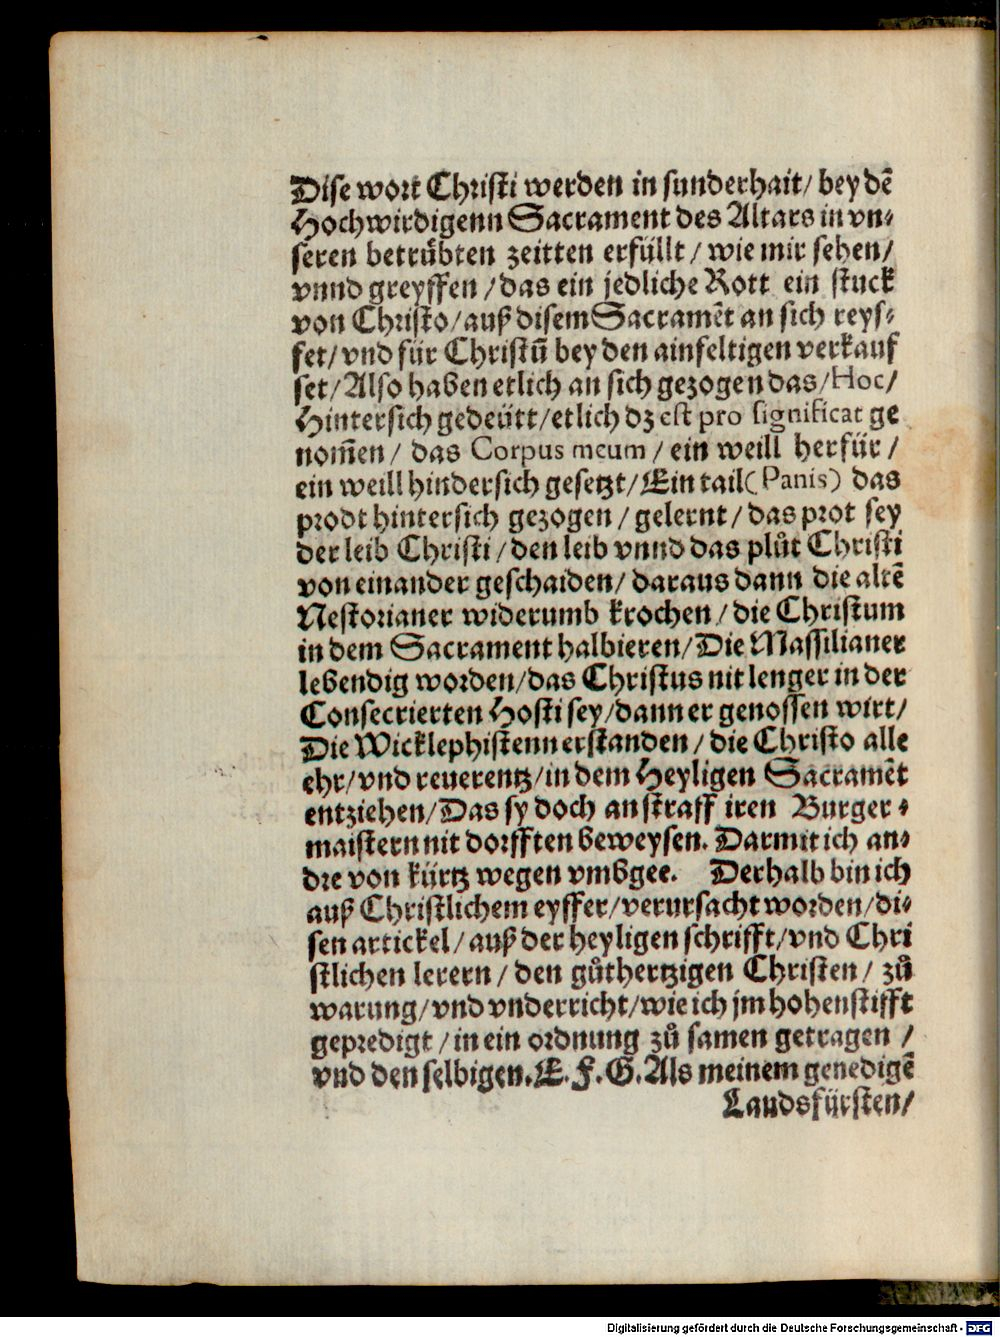 Dise wort Christi werden in sunderhait/ bey dē
Hochwirdigenn Sacrament des Altars in vn⸗
seren betruͤbten zeitten erfüllt / wie mir sehen/
vnnd greyffen / das ein jedliche Rott ein stuck
von Christo/ auß disem Sacramēt an sich reys⸗
set/ vnd für Christū bey den ainfeltigen verkauf
set/ Also haben etlich an sich gezogen das/ Hoc/
Hintersich gedeütt/ etlich dz est pro significat ge
nom̄en / das Corpus meum / ein weill herfür /
ein weill hindersich gesetzt/ Ein tail (Panis) das
prodt hintersich gezogen / gelernt / das prot sey
der leib Christi / den leib vnnd das pluͤt Christi
von einander geschaiden/ daraus dann die altē
Nestorianer widerumb krochen / die Christum
in dem Sacrament halbieren/ Die Massilianer
lebendig worden/ das Christus nit lenger in der
Consecrierten Hosti sey/ dann er genossen wirt/
Die Wicklephistenn erstanden / die Christo alle
ehr/ vnd reuerentz/ in dem Heyligen Sacramēt
entziehen/ Das sy doch an straff iren Burger⸗
maistern nit dorfften beweysen. Darmit ich an⸗
dre von kürtz wegen vmbgee. Derhalb bin ich
auß Christlichem eyffer/ verursacht worden/ di⸗
sen artickel/ auß der heyligen schrifft/ vnd Chri
stlichen lerern / den guͦthertzigen Christen / zuͦ
warung/ vnd vnderricht/ wie ich jm hohenstifft
gepredigt / in ein ordnung zuͦ samen getragen /
vnd den selbigen. E. F. G. Als meinem genedigē
Landsfürsten/
Digitalisierung gefördert durch die Deutsche Forschungsgemeinschaft - DFG